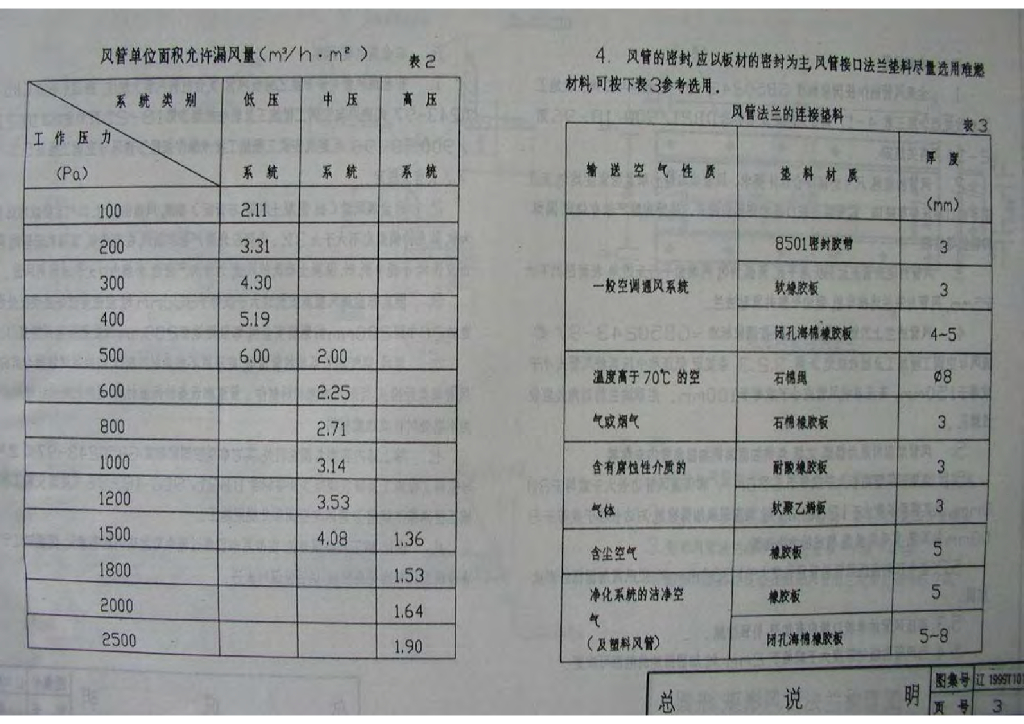 风管单位面积允许漏风量(m³/h·m²) 表2
系统类别 低压 中压 高压
工作压力
(Pa) 系统 系统 系统
100 2.11
200 3.31
300 4.30
400 5.19
500 6.00 2.00
600 2.25
800 2.71
1000 3.14
1200 3.53
1500 4.08 1.36
1800 1.53
2000 1.64
2500 1.90
4. 风管的密封,应以板材的密封为主,风管接口法兰垫料尽量选用难燃
材料,可按下表3参考选用.
风管法兰的连接垫料 表3
输送空气性质 垫料材质 厚度
(mm)
8501密封胶带 3
一般空调通风系统 软橡胶板 3
闭孔海棉橡胶板 4~5
温度高于70℃的空 石棉绳 ø8
气或烟气 石棉橡胶板 3
含有腐蚀性介质的 耐酸橡胶板 3
气体 软聚乙烯板 3
含尘空气 橡胶板 5
净化系统的洁净空 橡胶板 5
气
(及塑料风管) 闭孔海棉橡胶板 5-8
总 说 明 图集号 辽1999T101
页 号 3